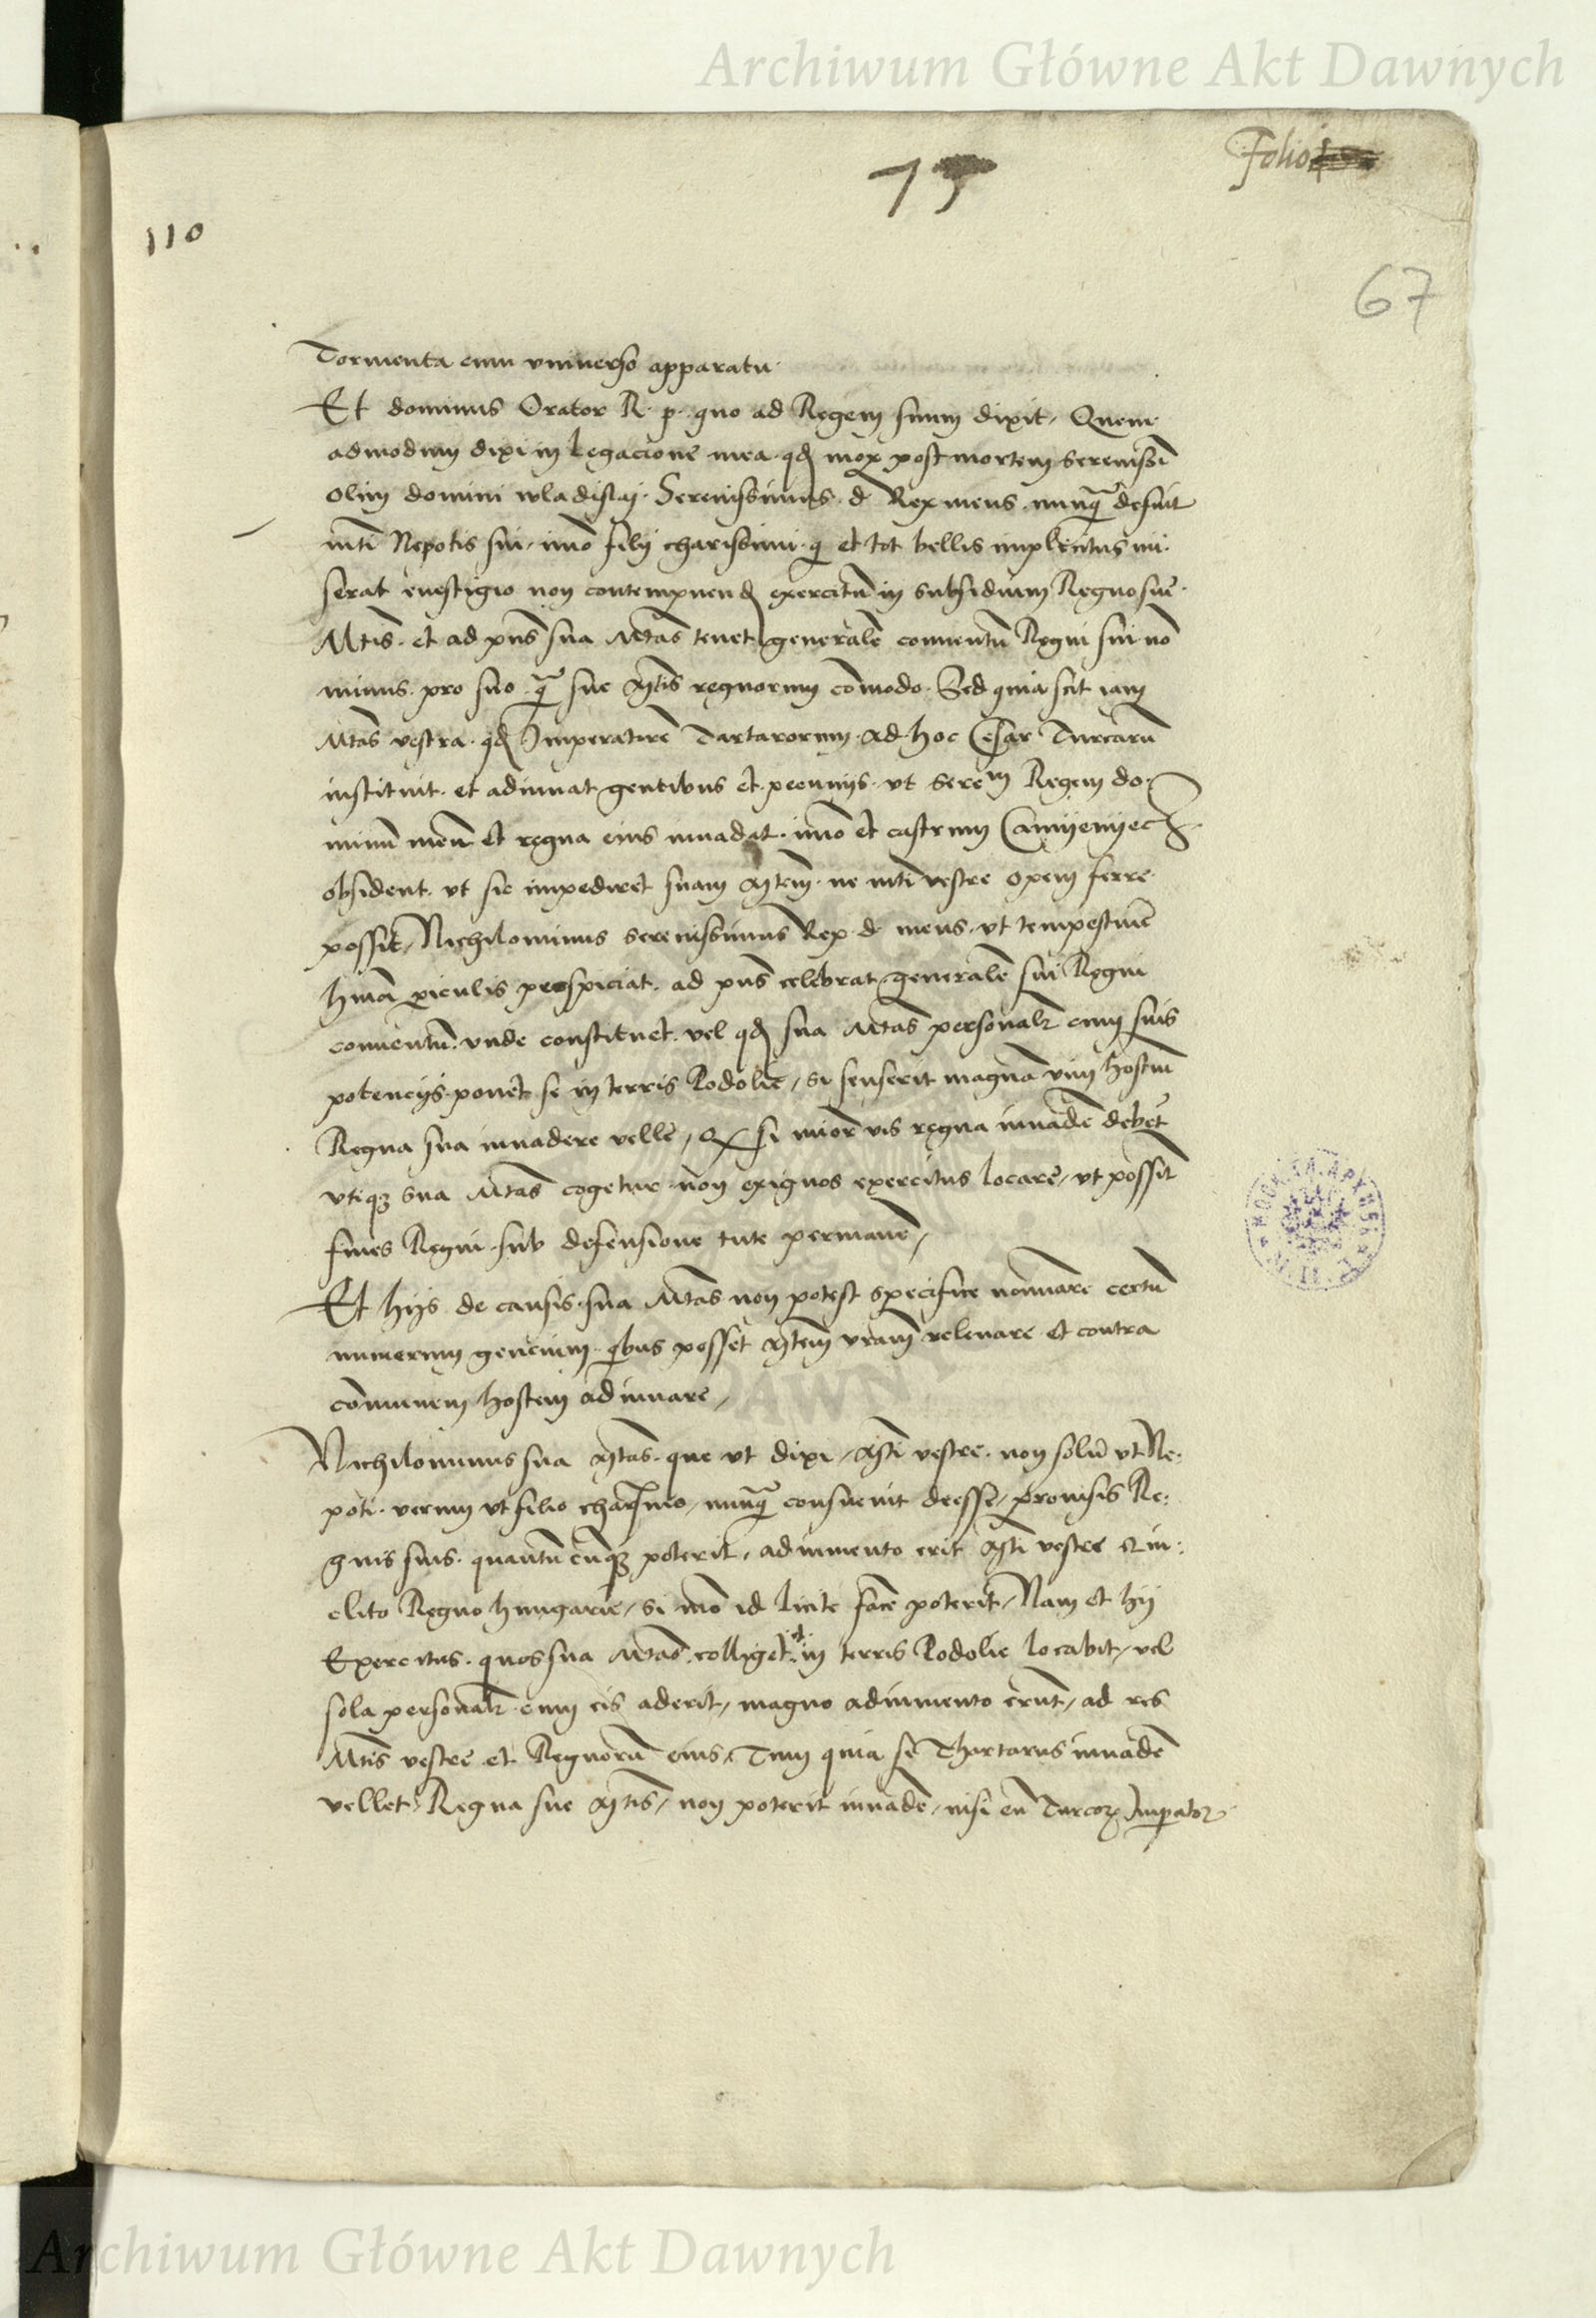 Archiwum Główne Akt Dawnych
Folio
75
110
67
Tormenta cum vniuerso apparatu.
Et dominus Orator R. p. quo ad Regem suum dixit, Quem-
admodum dixi in legacione mea. qđ mox post mortem serenissĩ
olim domini wladislaj. Serenissimus. d. Rex meus. nunq̃ defuit
mti Nepotis sui, imo filij charissimi. q et tot bellis implicitus mi-
serat euestigio non contempnend exercitũ in subsidium Regno sue.
Mtis. et ad pñs sua Mtas tenet generalẽ conuentũ Regni sui nõ
minus. pro suo q̃ sue Mtis regnorum cõmodo. Sed quia scit iam
Mtas vestra. qđ Imperatorẽ Tartarorum. ad hoc Cesar Turcarũ
instituit. et adiuuat gentibus et pecunijs. vt serem Regem do-
minũ meũ et regna eius inuadat. imo et castrum Camijenijecz
obsident. vt sic impediret suam Mtem. ne mti vestre opem ferre
possit, Nichilominus serenissimus Rex d. meus. vt tempestiuẽ
hmõi piculis prospiciat. ad pñs celebrat generalẽ sui Regni
conuentũ. vnde constituet. vel qđ sua Mtas personalr cum suis
potencijs. ponet se in terris Podolie, si senserit magnã vim hostiũ
Regna sua inuadere velle, si minor vis regna inuadẽ debet
vtiqz sua Mtas cogetur non exiguos exercitus locare, vt possit
fines Regni. sub defensione tute permanẽ,
Et hijs de causis. sua Mtas non potest specifice nominare certũ
numerum gencium. qbus posset Mtem vram releuare et contra
cõmunem hostem adiuuare,
Nichilominus sua Mtas. que vt dixi, Mti vestre. non solũ vt Ne-
poti. verum vt filio charsmo, nunq̃ consueuit deesse, prouisis Re-
gnis suis. quantũcũqz poterit, adiumento erit Mti vestre et in-
clito Regno hungarie, si mõ id licite facẽ poterit, Nam et hij
Exercitus. quos sua Mtas. colliget. et in terris Podolie locabit, vel
sola personalr cum eis aderit, magno adiumento erũt, ad res
Mtis vestre et Regnorũ eius, Tum quia si Thartarus inuadẽ
vellet Regna sue Mtis, non poterit inuadẽ, nisi eũ Turcoz Impator
Archiwum Główne Akt Dawnych